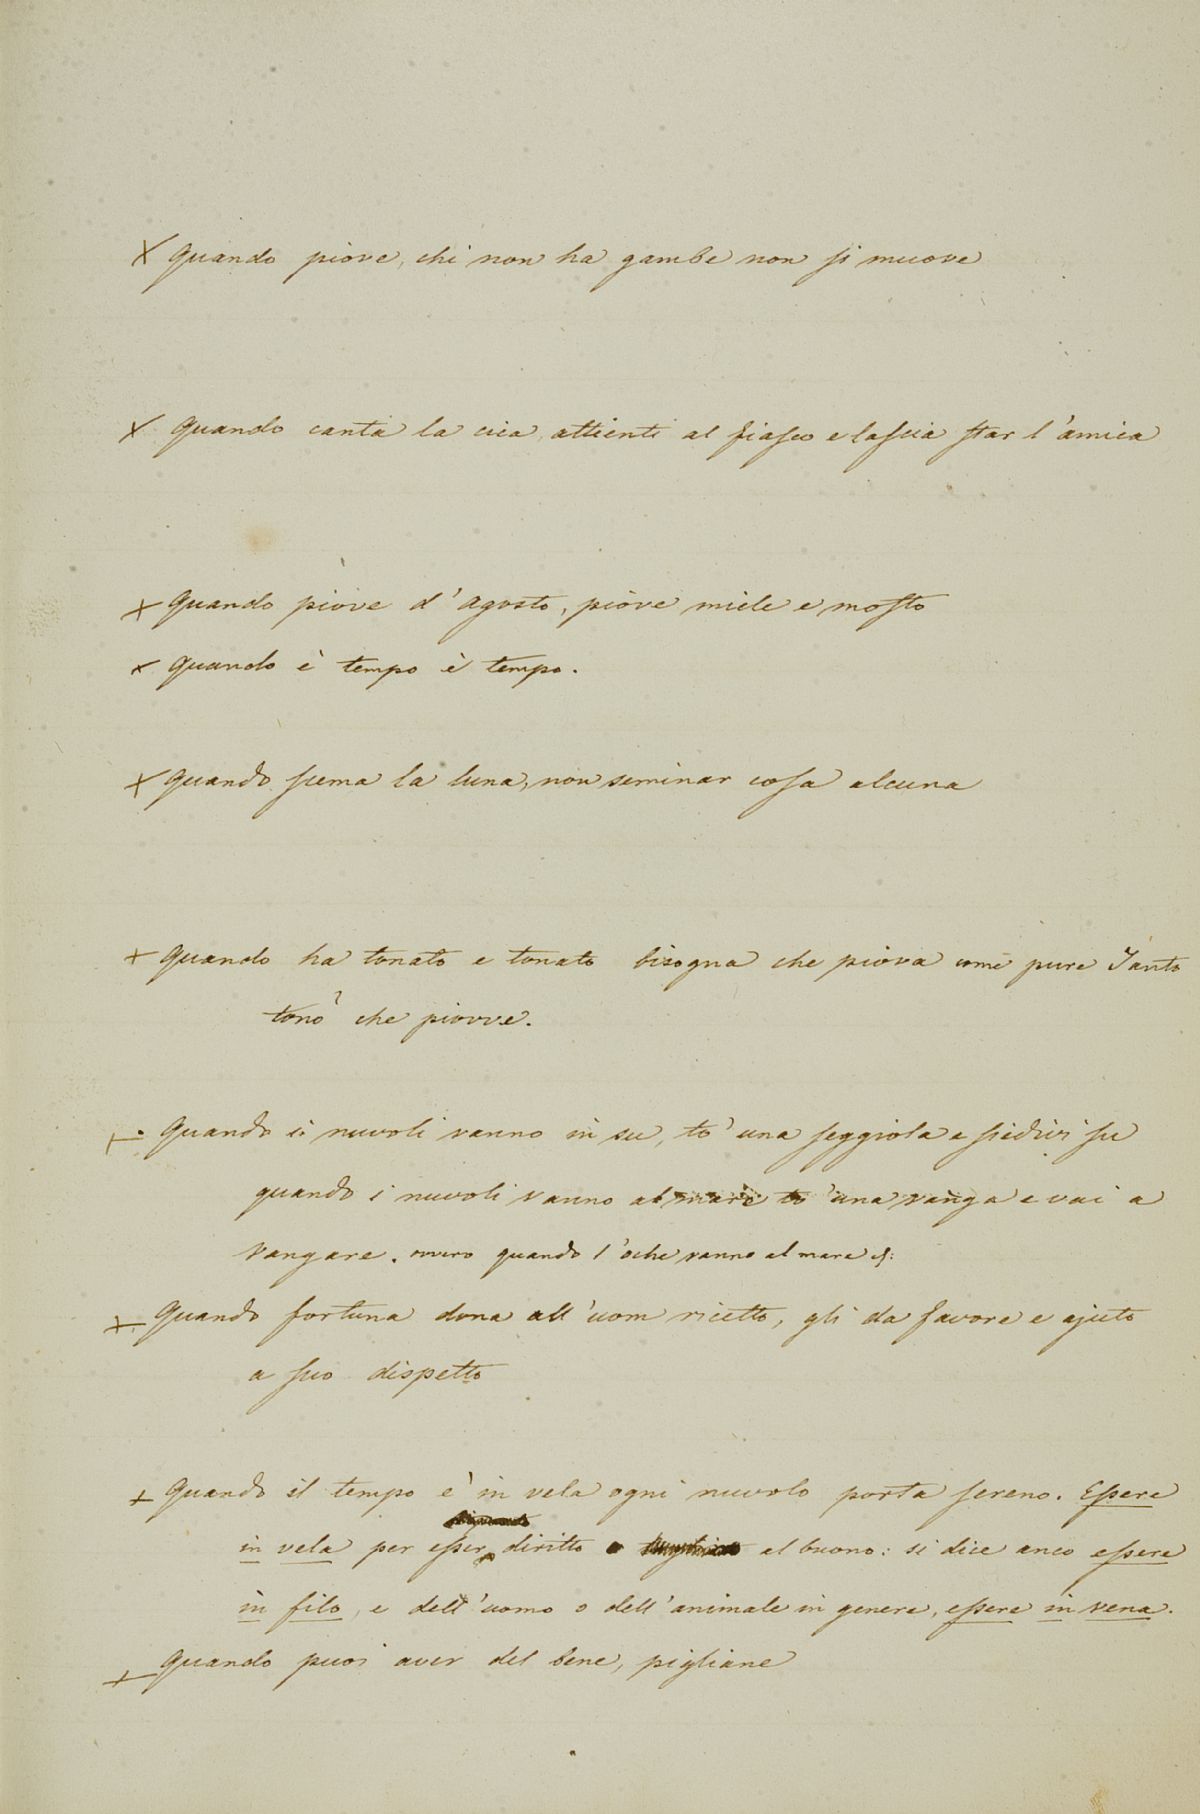 X Quando piove, chi non ha gambe non si muove
X Quando canta la cica, attienti al fiasco e lascia star l'amica
X Quando piove d'Agosto, piove miele e mosto
X Quando è tempo è tempo.
X Quando scema la luna, non seminar cosa alcuna
+ Quando ha tonato e tonato bisogna che piova come pure Tanto
tonò che piovve.
+ Quando i nuvoli vanno in su, to' una seggiola e siedivi su
quando i nuvoli vanno al mare to' una vanga e vai a
vangare. ovvero quando l'oche vanno al mare &:
+ Quando fortuna dona all'uom ricetto, gli da favore e ajuto
a suo dispetto
+ Quando il tempo è in vela ogni nuvolo porta sereno. Essere
in vela per esser diritto al buono: si dice anco essere
in filo, e dell'uomo o dell'animale in genere, essere in vena.
+ Quando puoi aver del bene, pigliane